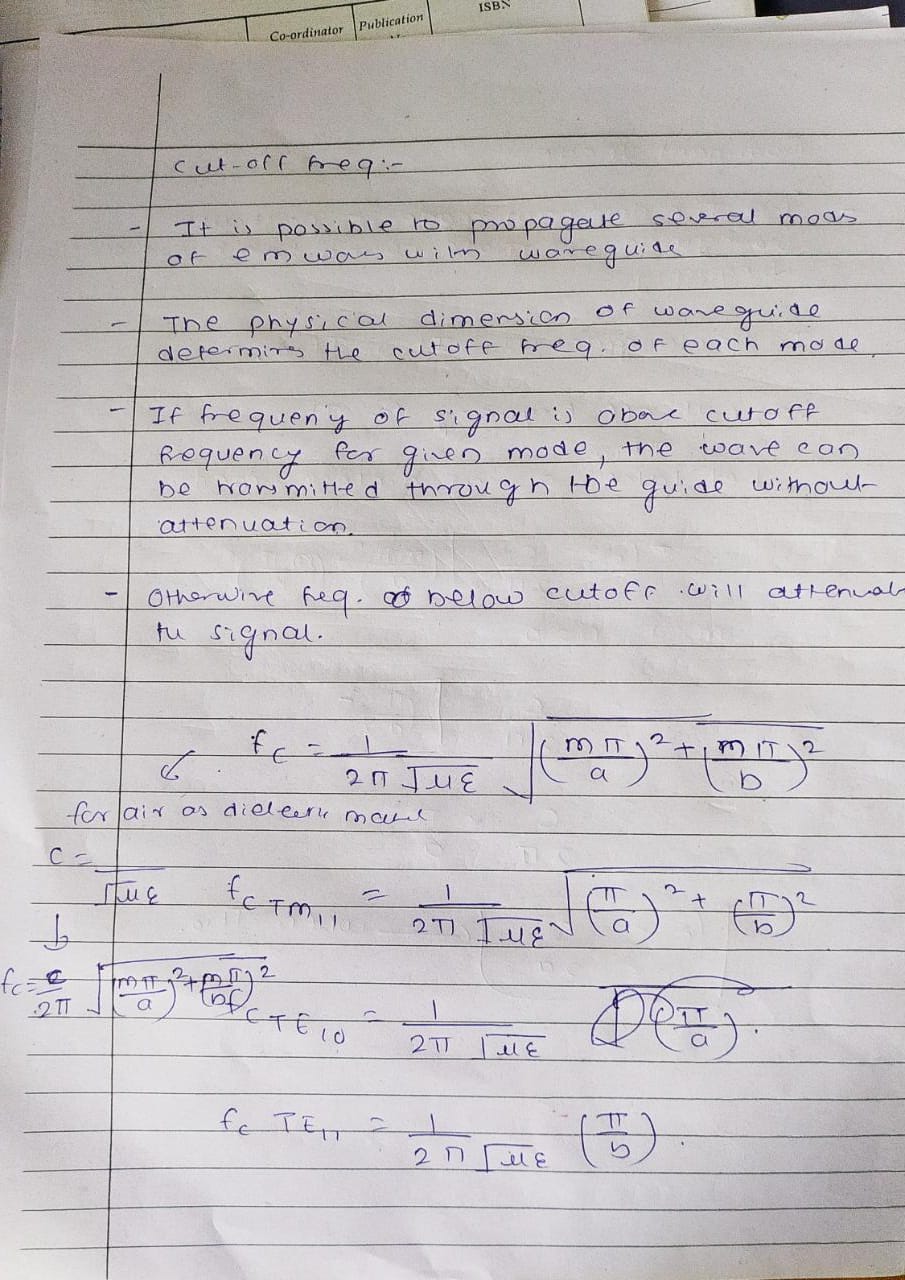 Co-ordinator Publication ISBN
Cut-off freq:-
- It is possible to propagate several mods
of em wavs with waveguide
- The physical dimension of waveguide
determins the cutoff freq. of each mode.
- If frequeny of signal is above cutoff
frequency for given mode, the wave can
be transmitted through the guide without
attenuation.
- Otherwise freq. of below cutoff will attenuate
the signal.
fc = 1/(2π √με) √((mπ/a)² + (mπ/b)²)
for air as dielectric
c = /√με
fc TM₁₁ = 1/(2π √με) √((π/a)² + (π/b)²)
fc = c/2π √((mπ/a)² + (mπ/b)²)
fc TE₁₀ = 1/(2π √με) (π/a).
fc TE₁₁ = 1/(2π √με) (π/b).